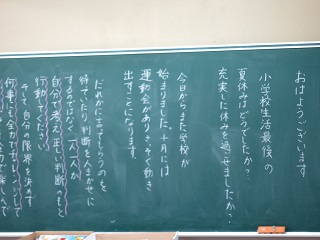 おはようございます
小学校生活最後の
夏休みはどうでしたか?
充実した休みを過ごせましたか?
今日からまた学校が
始まりました。十月には
運動会があり、さっそく動き
出すことになります。
だれかに言てもらうのを
待っていたり、判断を人まかせに
するのではなく、一人一人が
自分で考え、正しい判断のもと
行動してください
そして自分の限界を決めず
何事にも全力で